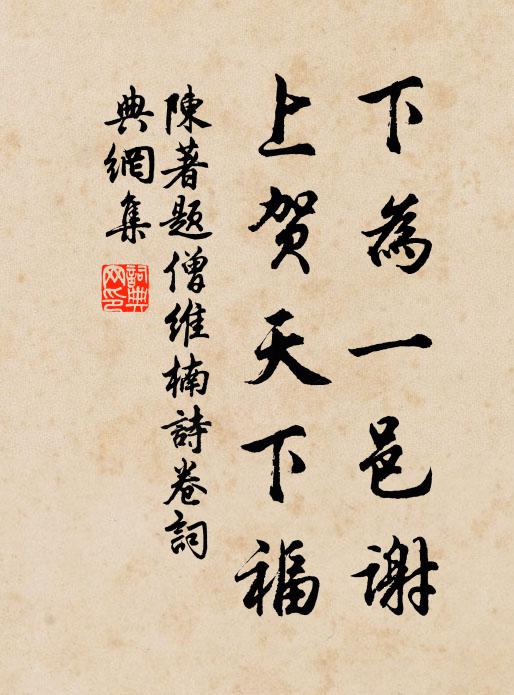 下為一邑謝
上贺天下福
陳著題僧維楠詩卷詞
典網集
詞典網印